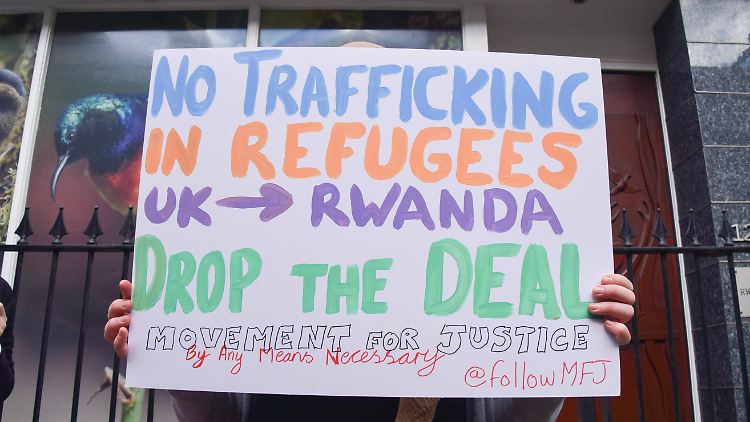 No TRAFFICKING
IN REFUGEES
UK → RWANDA
DROP THE DEAL
MOVEMENT FOR JUSTICE
By Any Means Necessary
@followMFJ